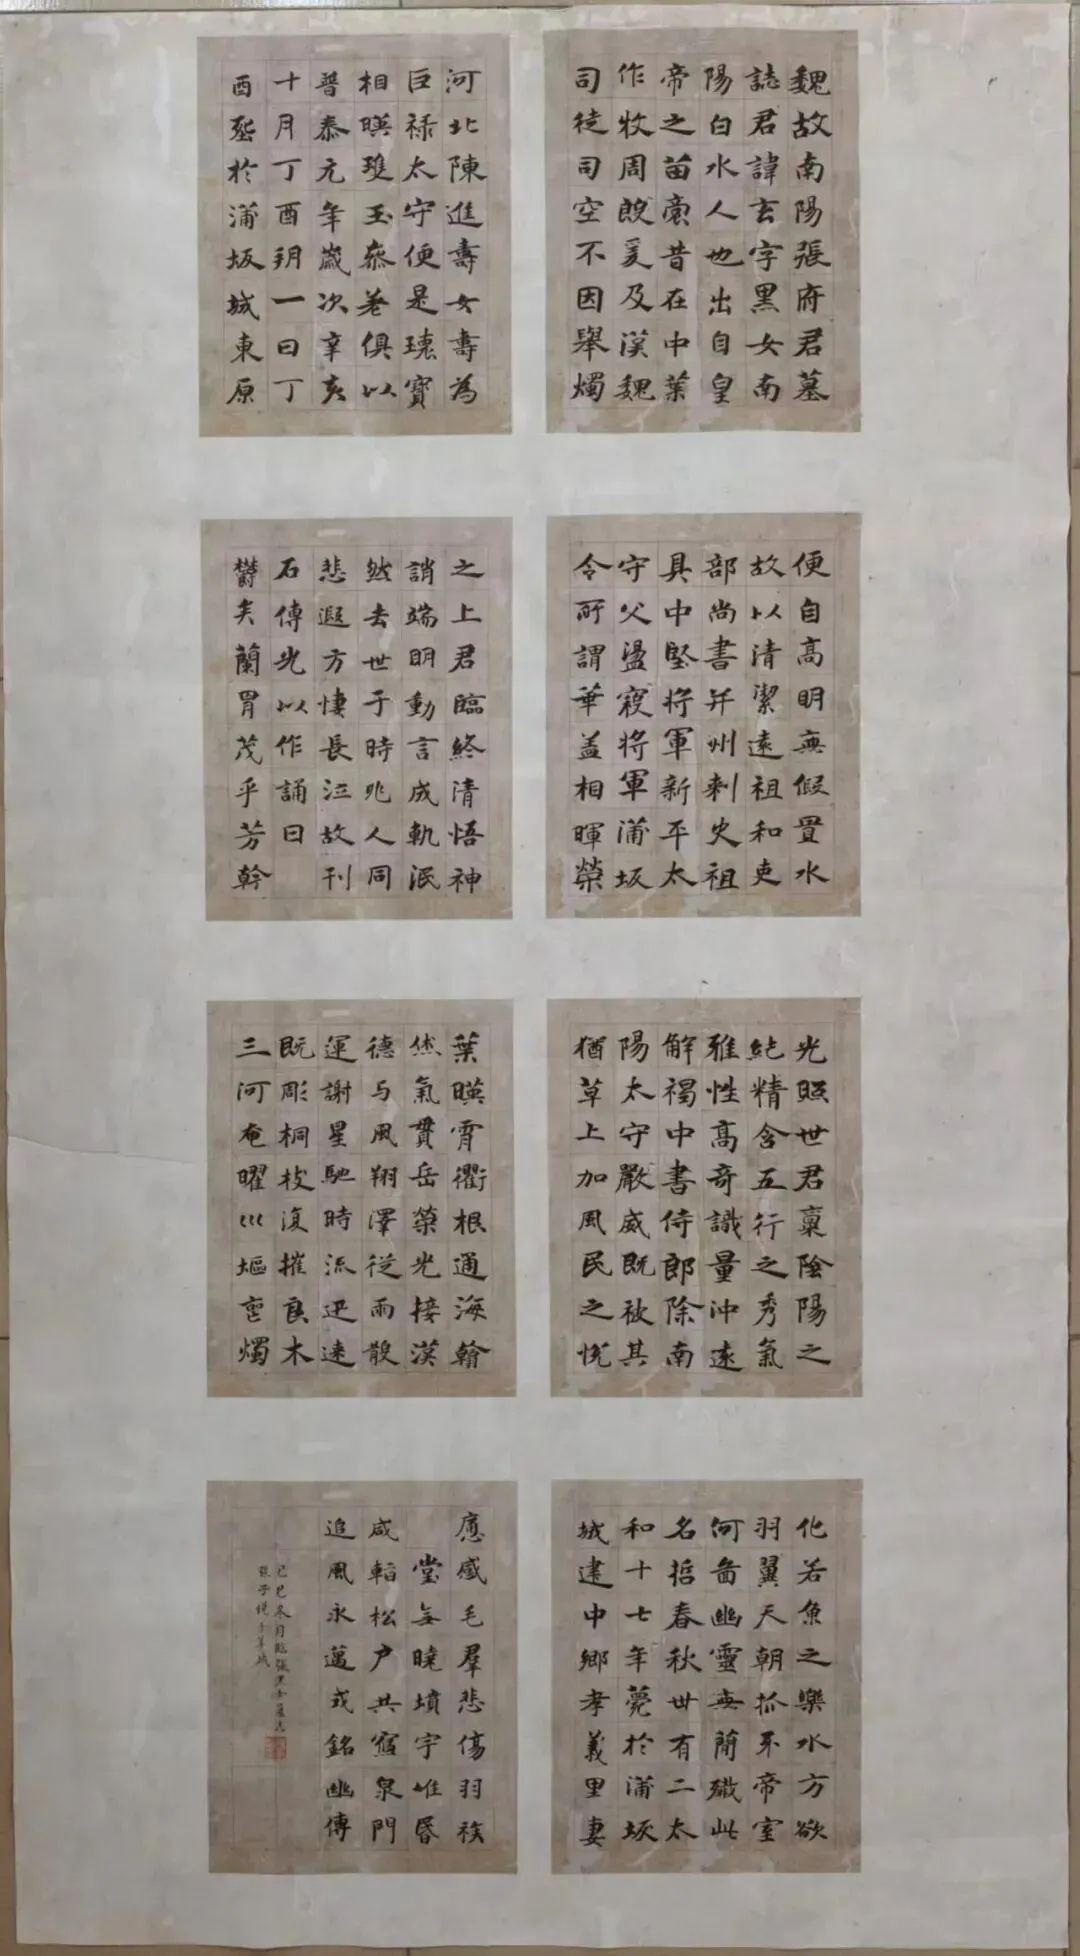 魏故南陽張府君墓
誌君諱玄字黑女南
陽白水人也出自皇
帝之苗裔昔在中葉
作牧周殷爰及漢魏
司徒司空不因舉燭
便自高明無假置水
故以清潔遠祖和吏
部尚書并州刺史祖
具中堅將軍新平太
守父盪寇將軍蒲坂
令所謂華蓋相暉榮
光照世君稟陰陽之
純精含五行之秀氣
雅性高奇識量沖遠
解褐中書侍郎除南
陽太守嚴威既被其
猶草上加風民之悅
化若魚之樂水方欲
羽翼天朝抓牙帝室
何啚幽靈無簡殲此
名哲春秋世有二太
和十七年薨於蒲坂
城建中鄉孝義里妻
河北陳進壽女壽為
巨祿太守便是瓌寶
相暎瓊玉參差俱以
普泰元年歲次辛亥
十月丁酉朔一日丁
酉塟於蒲坂城東原
之上君臨終清悟神
誚端明動言成軌泯
然去世于時兆人同
悲遐方悽長泣故刊
石傳光以作誦曰
鬱矣蘭胄茂乎芳幹
葉暎霄衢根通海翰
烋氣貫岳榮光接漢
德与風翔澤從雨散
運謝星馳時流迅速
既彫桐枝復摧良木
三河奄曜巛堰壼燭
應感毛羣悲傷羽族
堂無曉墳宇唯昏
咸韜松户共寢泉門
追風永邁式銘幽傳
己巳冬月臨張黑女墓志